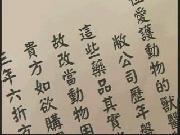 愛護動物的獸
敝公司歷年
這些藥品其實
故改當動物用
貴方如欲購
年六折方